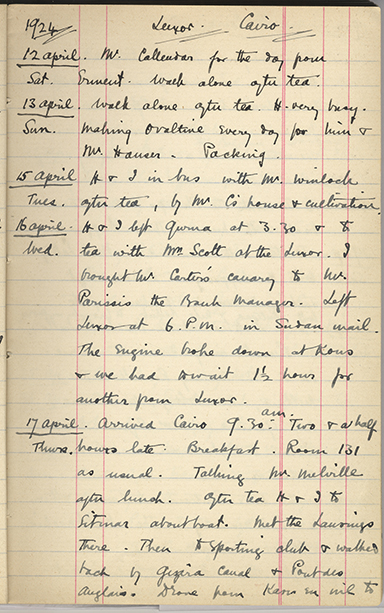 1924. Luxor. Cairo.
12 april. Mr. Callendar for the day from
Sat. Ermont. walk alone after tea.
13 april. walk alone after tea. H. very busy.
Sun. making Ovaltine every day for him &
Mr. Hauser. Packing.
15 april H & I in bus with Mr. Winlock
Tues. after tea, by Mr. C's house & cultivation
16 april. H & I left Gurna at 3.30 & to
Wed. tea with Mrs Scott at the Luxor. I
brought Mr. Carter's canary to Mr.
Parissis the Bank Manager. Left
Luxor at 6. P.M. in Sudan mail.
The Engine broke down at Kous
& we had to wait 1½ hours for
another from Luxor.
17 april. Arrived Cairo 9.30. am. Two & a half
Thurs. hours late. Breakfast. Room 131
as usual. Talking Mr. Melville
after lunch. after tea H & I to
Sitmar about boat. Met the
there. Then to Sporting club & walked
back by Gezira Canal & Pont des
Anglais. Drove from Kasr en nil to